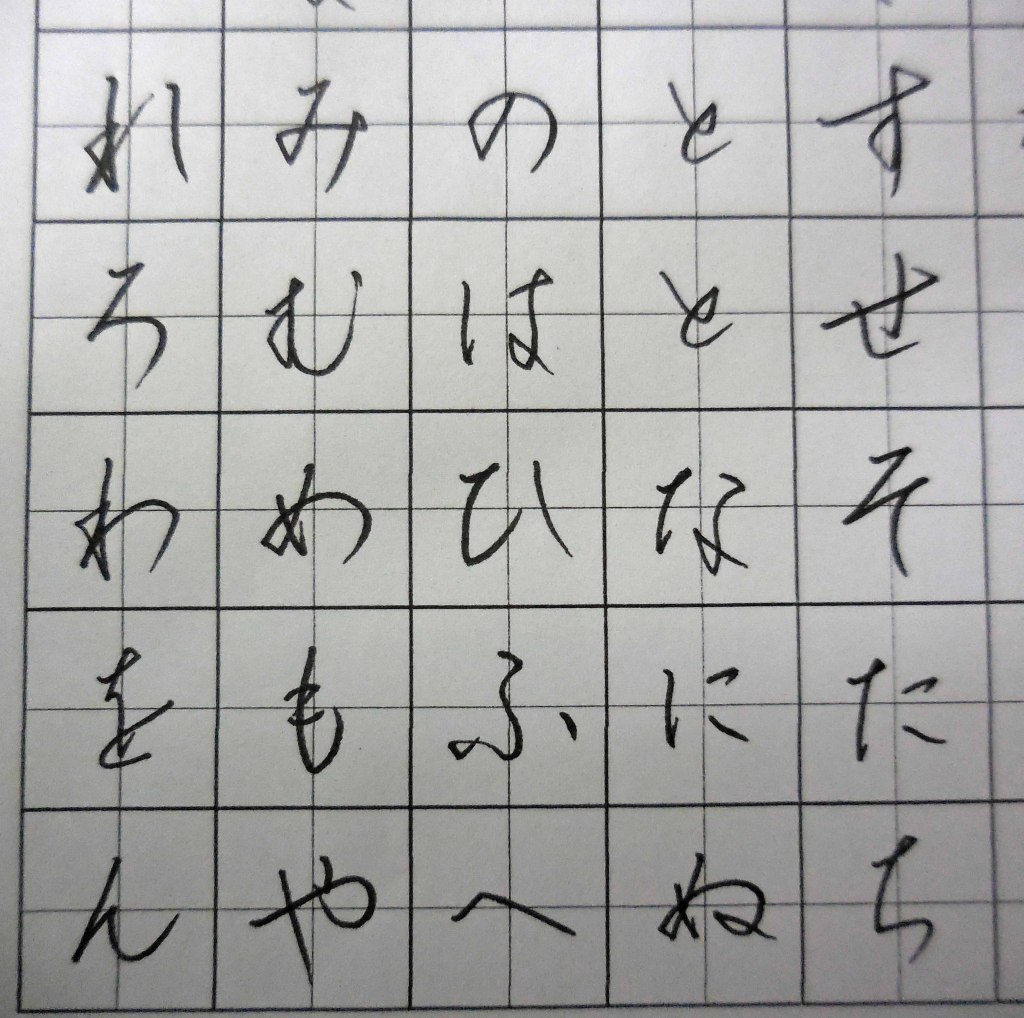 すせそたち
ととなにぬ
のはひふへ
みむめもや
れろわをん